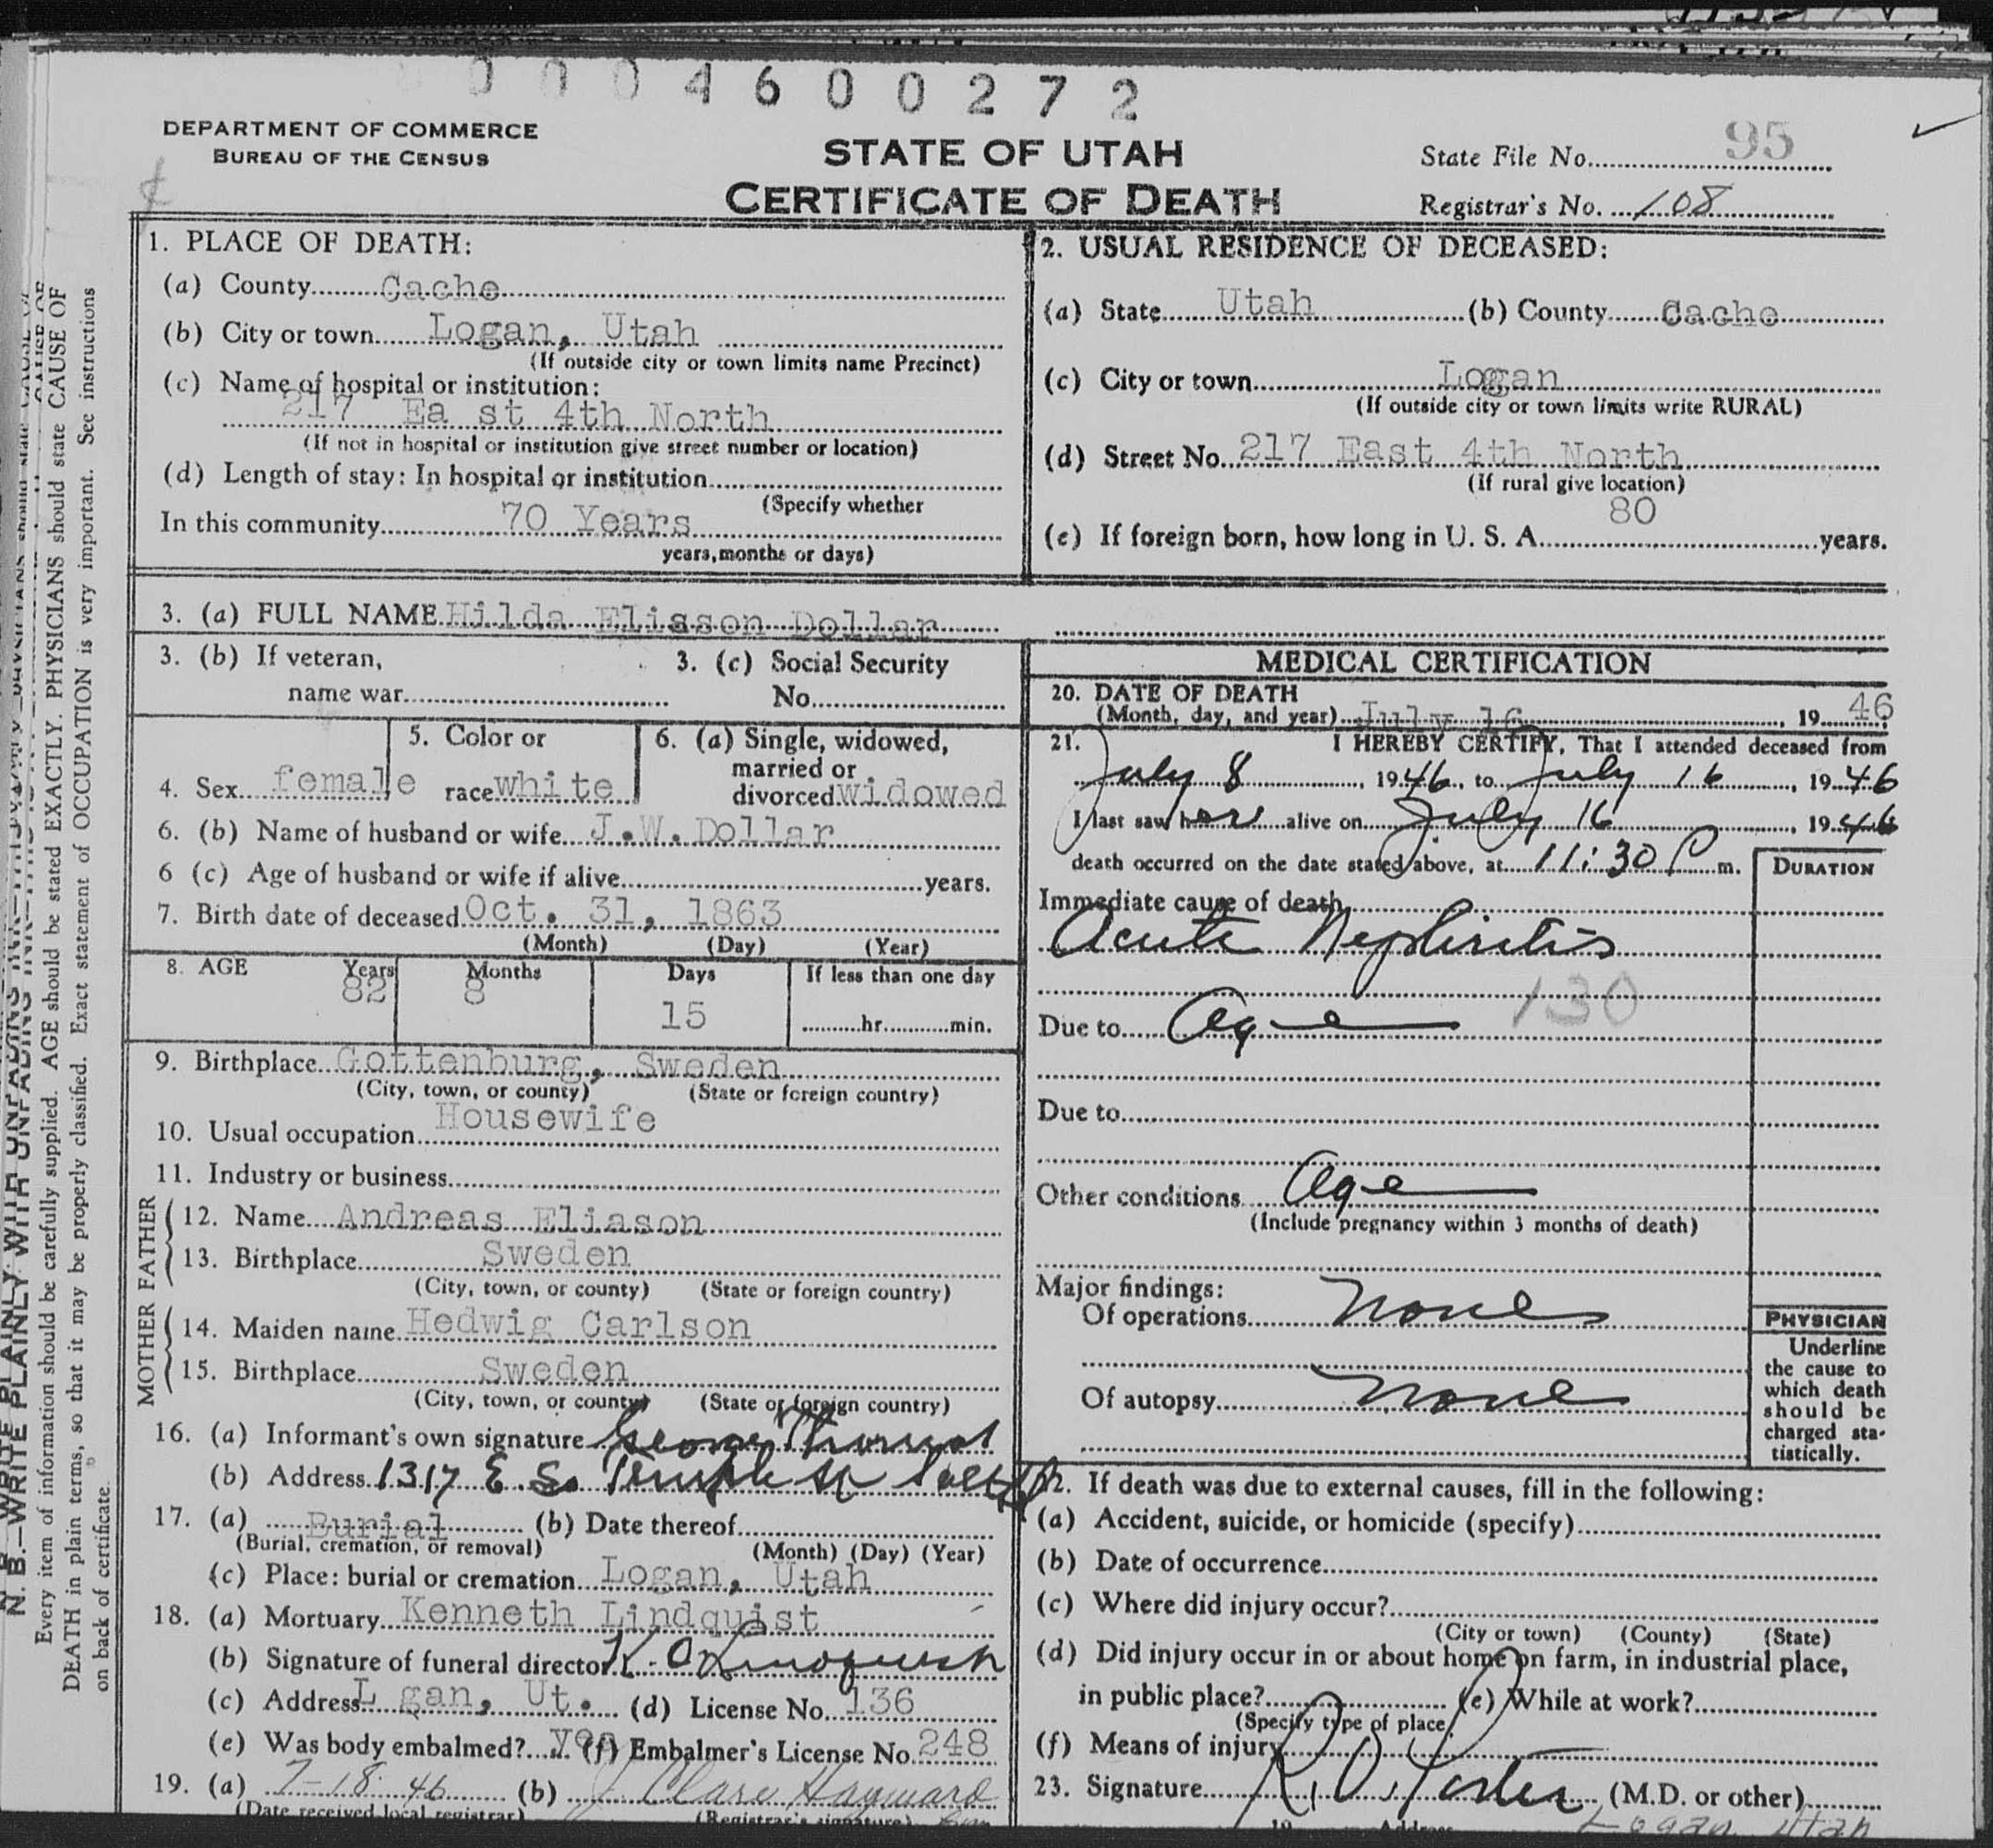 0004600272
DEPARTMENT OF COMMERCE
BUREAU OF THE CENSUS
STATE OF UTAH
CERTIFICATE OF DEATH
State File No. 95
Registrar's No. 108
N. B.—WRITE PLAINLY WITH UNFADING
Every item of information should be carefully supplied. AGE should be stated EXACTLY. PHYSICIANS should state CAUSE OF
DEATH in plain terms, so that it may be properly classified. Exact statement of OCCUPATION is very important. See instructions
on back of certificate.
1. PLACE OF DEATH:
(a) County Cache
(b) City or town Logan, Utah
(If outside city or town limits name Precinct)
(c) Name of hospital or institution:
217 Ea st 4th North
(If not in hospital or institution give street number or location)
(d) Length of stay: In hospital or institution
(Specify whether
In this community 70 Years
years, months or days)
2. USUAL RESIDENCE OF DECEASED:
(a) State Utah (b) County Cache
(c) City or town Logan
(If outside city or town limits write RURAL)
(d) Street No. 217 East 4th North
(If rural give location)
80
(e) If foreign born, how long in U. S. A. years.
3. (a) FULL NAME Hilda Eliason Dollar
3. (b) If veteran,
name war
3. (c) Social Security
No.
4. Sex female
5. Color or
race white
6. (a) Single, widowed,
married or
divorced widowed
6. (b) Name of husband or wife J.W. Dollar
6 (c) Age of husband or wife if alive years.
7. Birth date of deceased Oct. 31, 1863
(Month) (Day) (Year)
8. AGE Years Months Days If less than one day
82 8 15 hr. min.
9. Birthplace Gottenburg, Sweden
(City, town, or county) (State or foreign country)
10. Usual occupation Housewife
11. Industry or business
FATHER
12. Name Andreas Eliason
13. Birthplace Sweden
(City, town, or county) (State or foreign country)
MOTHER
14. Maiden name Hedwig Carlson
15. Birthplace Sweden
(City, town, or county) (State or foreign country)
16. (a) Informant's own signature George
(b) Address 1317 E. So Temple St Salt
17. (a) Burial (b) Date thereof
(Burial, cremation, or removal) (Month) (Day) (Year)
(c) Place: burial or cremation Logan, Utah
18. (a) Mortuary Kenneth Lindquist
(b) Signature of funeral director K. O Lindquist
(c) Address L gan, Ut. (d) License No. 136
(e) Was body embalmed? yes (f) Embalmer's License No. 248
19. (a) 7-18-46 (b) Clare Hayward
(Date received local registrar) (Registrar's signature)
MEDICAL CERTIFICATION
20. DATE OF DEATH
(Month, day, and year) July 16, 1946
21. I HEREBY CERTIFY, That I attended deceased from
July 8, 1946, to July 16, 1946
I last saw her alive on July 16, 1946
death occurred on the date stated above, at 11:30 P m.
DURATION
Immediate cause of death
Acute Nephritis
130
Due to Age
Due to
Other conditions Age
(Include pregnancy within 3 months of death)
Major findings:
Of operations None
Of autopsy None
PHYSICIAN
Underline
the cause to
which death
should be
charged sta-
tistically.
22. If death was due to external causes, fill in the following:
(a) Accident, suicide, or homicide (specify)
(b) Date of occurrence
(c) Where did injury occur?
(City or town) (County) (State)
(d) Did injury occur in or about home on farm, in industrial place,
in public place? (e) While at work?
(Specify type of place)
(f) Means of injury
23. Signature R. O. Porter (M.D. or other)
19 Address Logan Utah